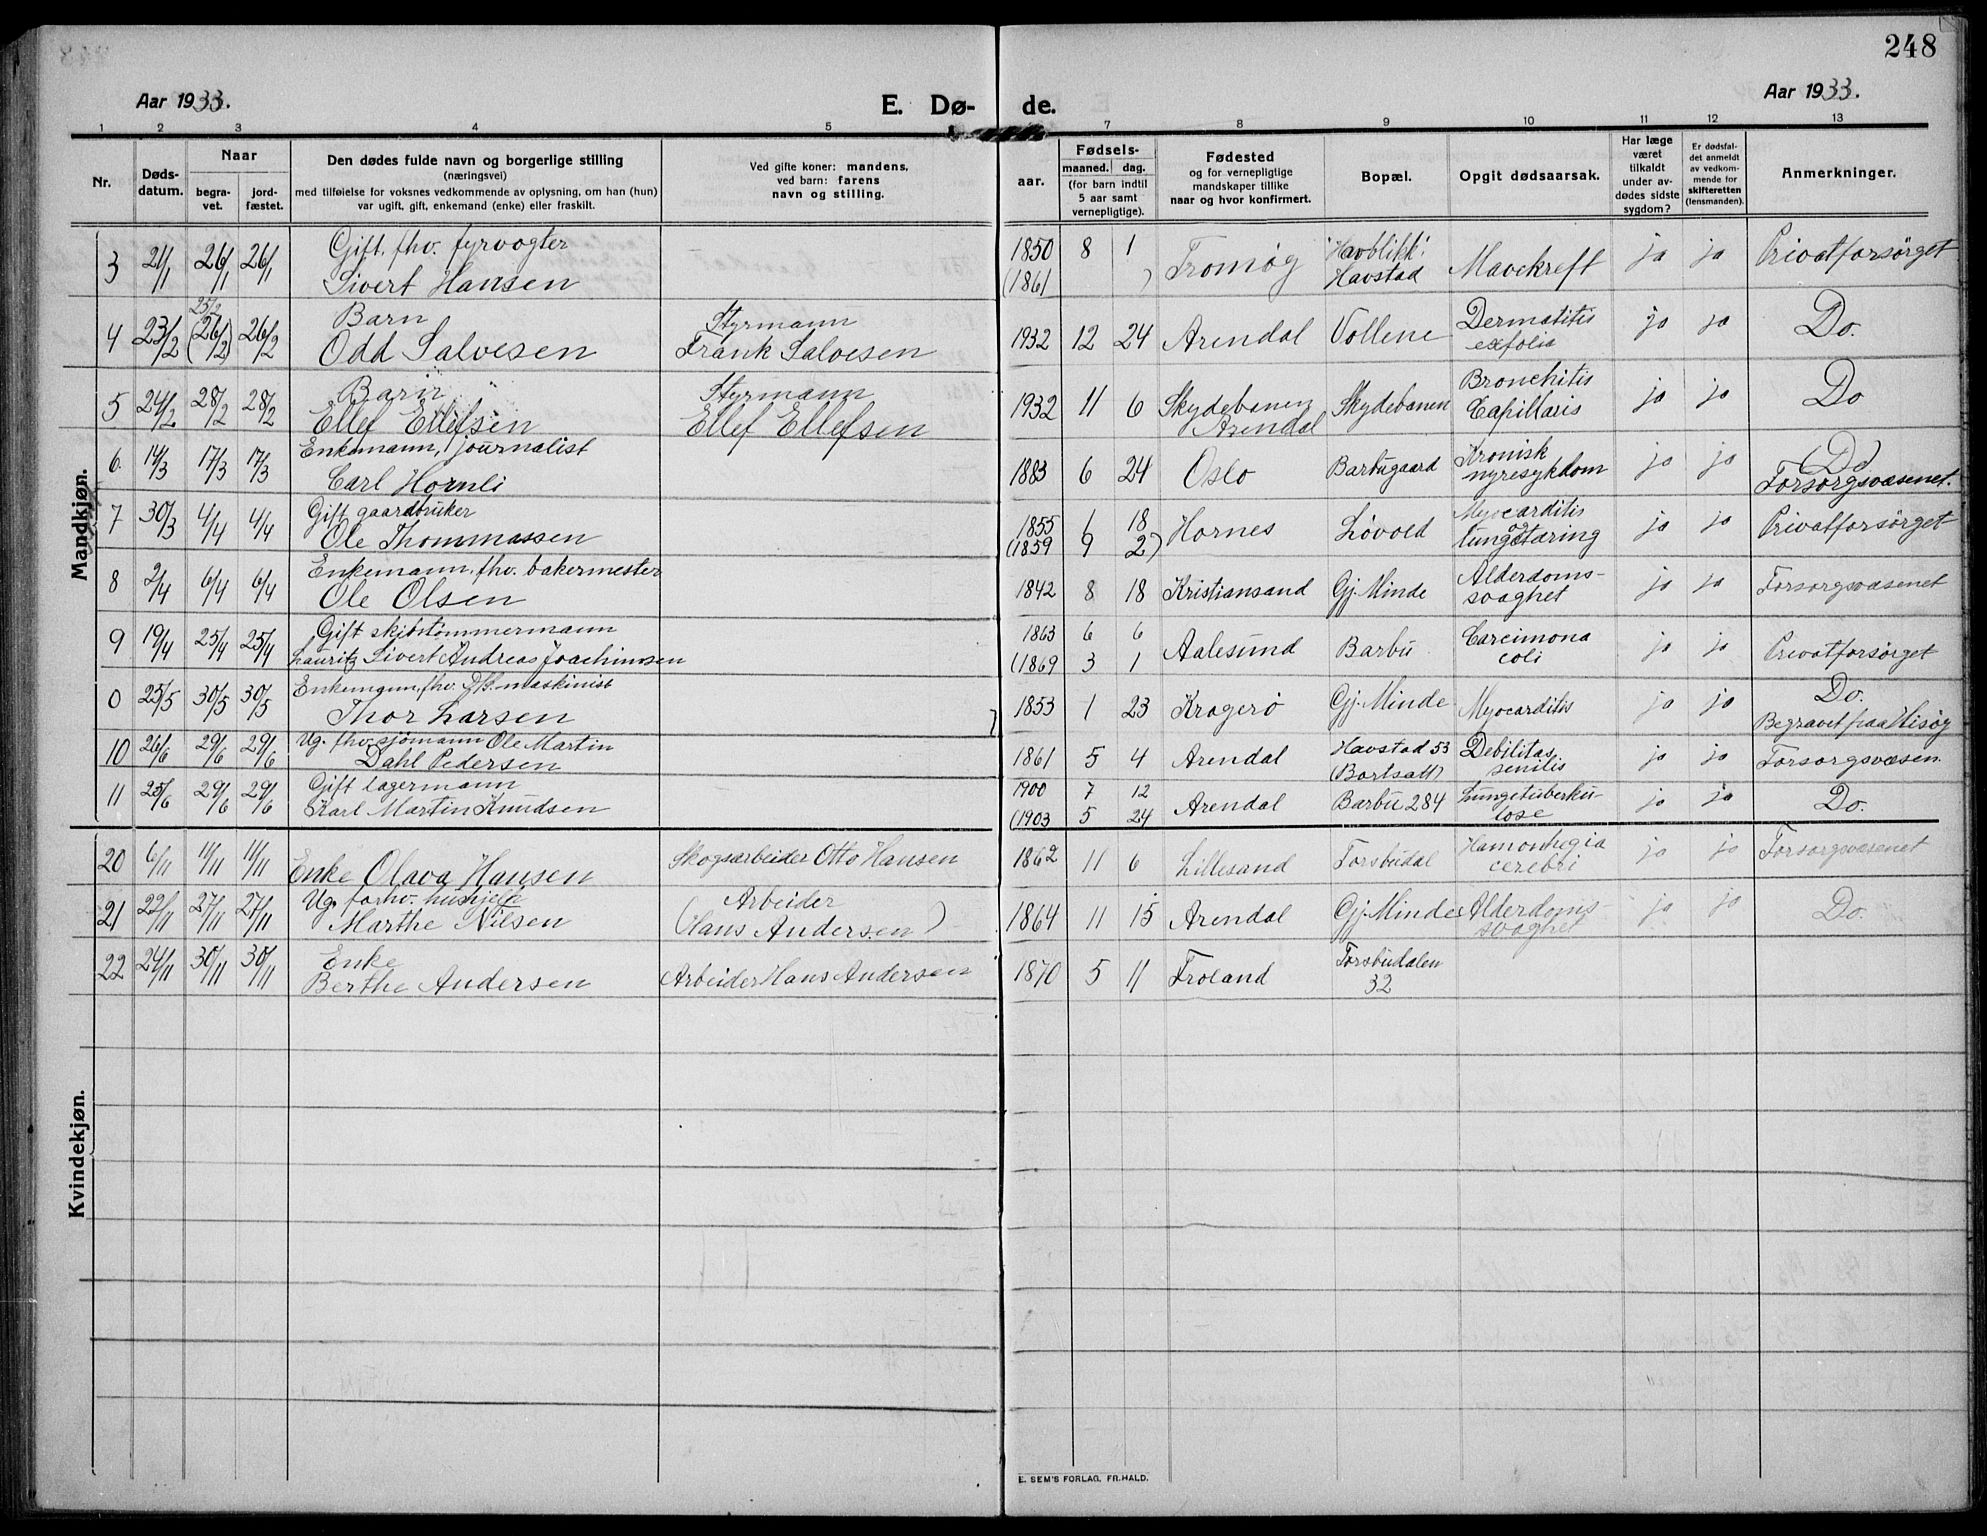 248
Aar 1933.
E. Dø-
de.
Aar 1933.
1 2 3 4 5 7 8 9 10 11 12 13
Nr.
Døds-
datum.
Naar
begra-
vet.
jord-
fæstet.
Den dødes fulde navn og borgerlige stilling
(næringsvei)
med tilføielse for voksnes vedkommende av oplysning, om han (hun)
var ugift, gift, enkemand (enke) eller fraskilt.
Ved gifte koner: mandens,
ved barn: farens
navn og stilling.
aar.
Fødsels-
maaned. dag.
(for barn indtil
5 aar samt
vernepligtige).
Fødested
og for vernepligtige
mandskaper tillike
naar og hvor konfirmert.
Bopæl.
Opgit dødsaarsak.
Har læge
været
tilkaldt
under av-
dødes sidste
sygdom?
Er dødsfal-
det anmeldt
av vedkom-
mende for
skifteretten
(lensmanden).
Anmerkninger.
Mandkjøn.
3 21/1 26/1 26/1 Gift, fhv. fyrvogter
Sivert Hansen
1850 8 1
(1861 )
Tromøy
"Havblikk"
Havstad
Mavekreft ja ja Privatforsørget
4 23/2 25/2
(26/2) 26/2 Barn
Odd Salvesen
Styrmann
Frank Salvesen
1932 12 24 Arendal Vollene Dermatitis
exfolia
ja ja Do.
5 24/2 28/2 28/2 Barn
Ellef Ellefsen
Styrmann
Ellef Ellefsen
1932 11 6 Skydebanen
Arendal
Skydebanen Bronchitis
Capillaris
ja ja Do
6. 14/3 17/3 17/3 Enkemann, journalist
Carl Hornli
1883 6 24 Oslo Barbugaard Kronisk
nyresykdom
ja ja (Do)
Forsorgsvæsenet.
7 30/3 4/4 4/4 Gift gaardbruker
Ole Thommassen
1855 1 18
(1859 9 2)
Hornes Løvold Myocarditis
og
lungetæring
ja ja Privatforsørget
8 2/4 6/4 6/4 Enkemann, fhv. bakermester
Ole Olsen
1842 8 18 Kristiansand Gj. Minde Alderdoms-
svaghet
ja ja Forsorgsvæsenet
9 19/4 25/4 25/4 Gift skibstømmermann
Lauritz Sivert Andreas Joachimsen
1863 6 6
(1869 3 1
Aalesund Barbu Carcimona
coli
ja ja Privatforsørget
0 25/5 30/5 30/5 Enkemann, fhv. D/S. maskinist
Thor Larsen
1853 1 23 Kragerø Gj. Minde Myocarditis ja ja Do.
Begravet paa Hisøy
10 26/6 29/6 29/6 Ug. fhv. sjømann Ole Martin
Dahl Pedersen
1861 5 4 Arendal Havstad 53
(Bortsatt)
Debilitas
senilis
ja ja Forsorgsvæsen.
11 25/6 29/6 29/6 Gift lagermann
Karl Martin Knudsen
1900 7 12
(1903 5 24
Arendal Barbu 284 Lungetuberku-
lose
ja ja Do.
Kvindekjøn.
20 6/11 11/11 11/11 Enke Olava Hansen Skogsarbeider Otto Hansen
1862 11 6 Lillesand Torsbudal Hamonhegia
cerebri
ja ja Forsorgsvæsenet
21 22/11 27/11 27/11 Ug. forhv. hushjelp
Marthe Nilsen
Arbeider
(Hans Andersen)
1864 11 15 Arendal Gj. Minde Alderdoms-
svaghet
ja ja Do.
22 24/11 30/11 30/11 Enke
Berthe Andersen
Arbeider Hans Andersen
1870 5 11 Froland Torsbudalen
32
E. SEM'S FORLAG, FR.HALD.